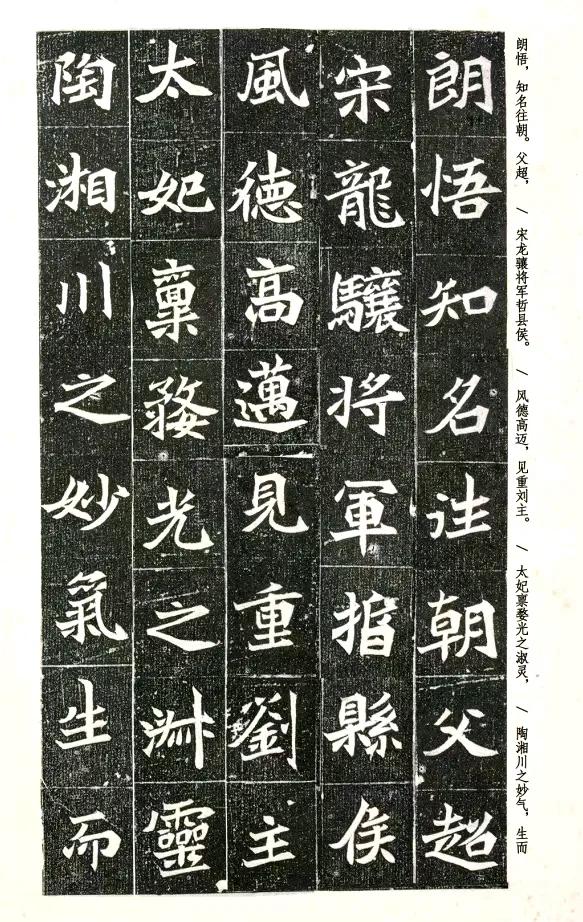 朗悟，知名往朝。父超，／宋龙骧将军哲县侯。／风德高迈，见重刘主。／太妃禀婺光之淑灵，／陶湘川之妙气，生而
朗悟知名往朝父超
宋龍驤将軍㨖縣侯
風德高邁見重劉主
太妃稟婺光之淋靈
陶湘川之妙氣生而